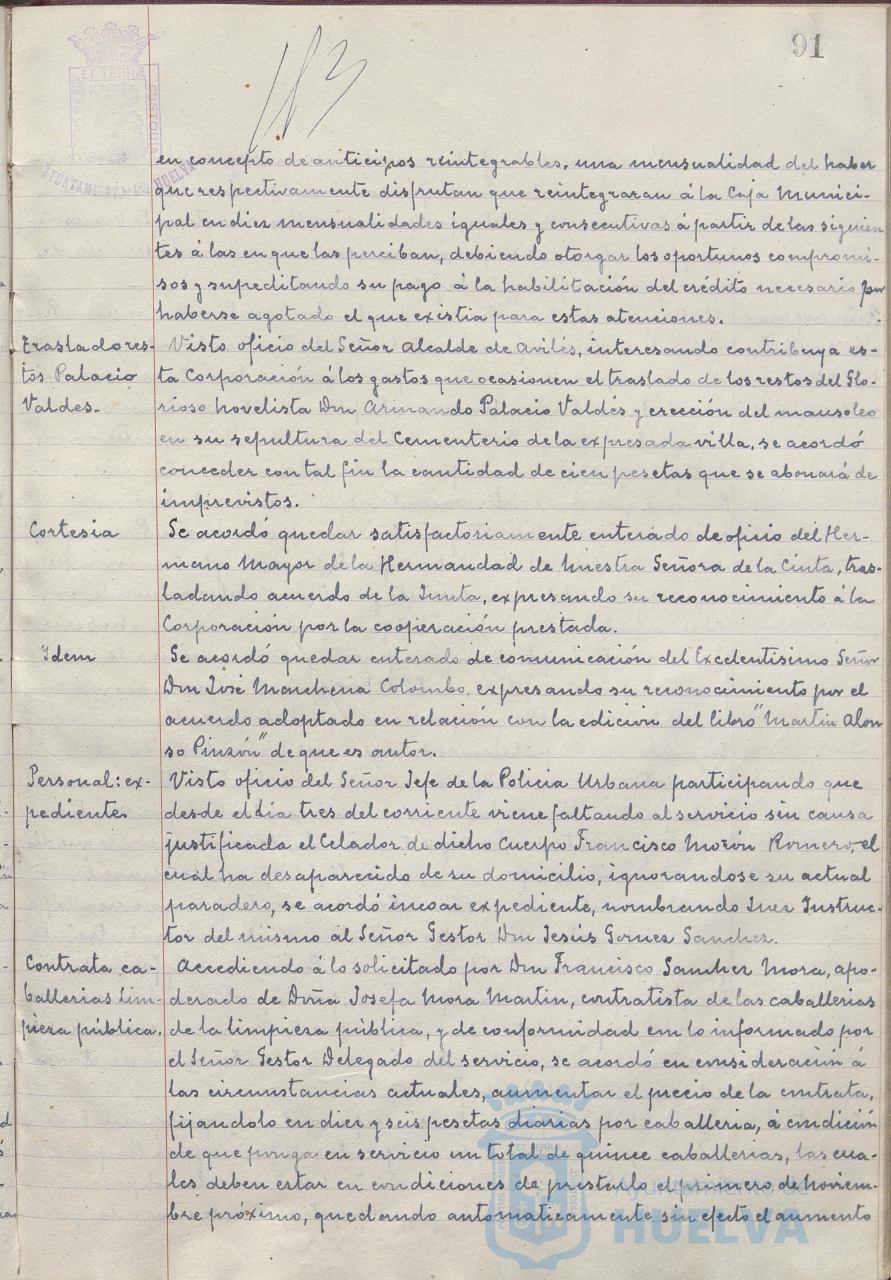 91
en concepto de anticipos reintegrables, una mensualidad del haber
que respectivamente disfrutan que reintegraran á la Caja Munici-
pal en diez mensualidades iguales y consecutivas á partir de las siguien
tes á las en que las perciban, debiendo otorgar los oportunos compromi-
sos y supeditando su pago á la habilitación del crédito necesario por
haberse agotado el que existia para estas atenciones.
Traslado res-
tos Palacio
Valdes.-
Visto oficio del Señor Alcalde de Avilés, interesando contribuya es-
ta Corporación á los gastos que ocasionen el traslado de los restos del Glo-
rioso novelista Don Armando Palacio Valdés y erección del mausoleo
en su sepultura del Cementerio de la expresada villa, se acordó
conceder con tal fin la cantidad de cien pesetas que se abonará de
imprevistos.
Cortesia
Se acordó quedar satisfactoriamente enterado de oficio del Her-
mano Mayor de la Hermandad de Nuestra Señora de la Cinta, tras-
ladando acuerdo de la Junta, expresando su reconocimiento á la
Corporación por la cooperación prestada.
Idem
Se acordó quedar enterado de comunicación del Excelentisimo Señor
Don José Marchena Colombo, expresando su reconocimiento por el
acuerdo adoptado en relación con la edición del libro "Martin Alon
so Pinzón" de que es autor.
Personal: ex-
pediente.
Visto oficio del Señor Jefe de la Policia Urbana participando que
desde el dia tres del corriente viene faltando al servicio sin causa
justificada el Celador de dicho Cuerpo Francisco Morón Romero, el
cual ha desaparecido de su domicilio, ignorandose su actual
paradero, se acordó incoar expediente, nombrando Juez Instruc-
tor del mismo al Señor Gestor Don Jesús Gomez Sanchez.
Contrata ca-
ballerias Lim-
pieza pública.
Accediendo á lo solicitado por Don Francisco Sanchez Mora, apo-
derado de Doña Josefa Mora Martin, contratista de las caballerias
de la limpieza pública, y de conformidad con lo informado por
el Señor Gestor Delegado del servicio, se acordó en consideración á
las circunstancias actuales, aumentar el precio de la contrata,
fijandolo en diez y seis pesetas diarias por caballeria, á condición
de que ponga en servicio un total de quince caballerias, las cua-
les deben estar en condiciones de prestarlo el primero de Noviem-
bre próximo, quedando automaticamente sin efecto el aumento
Ayuntamiento de
HUELVA